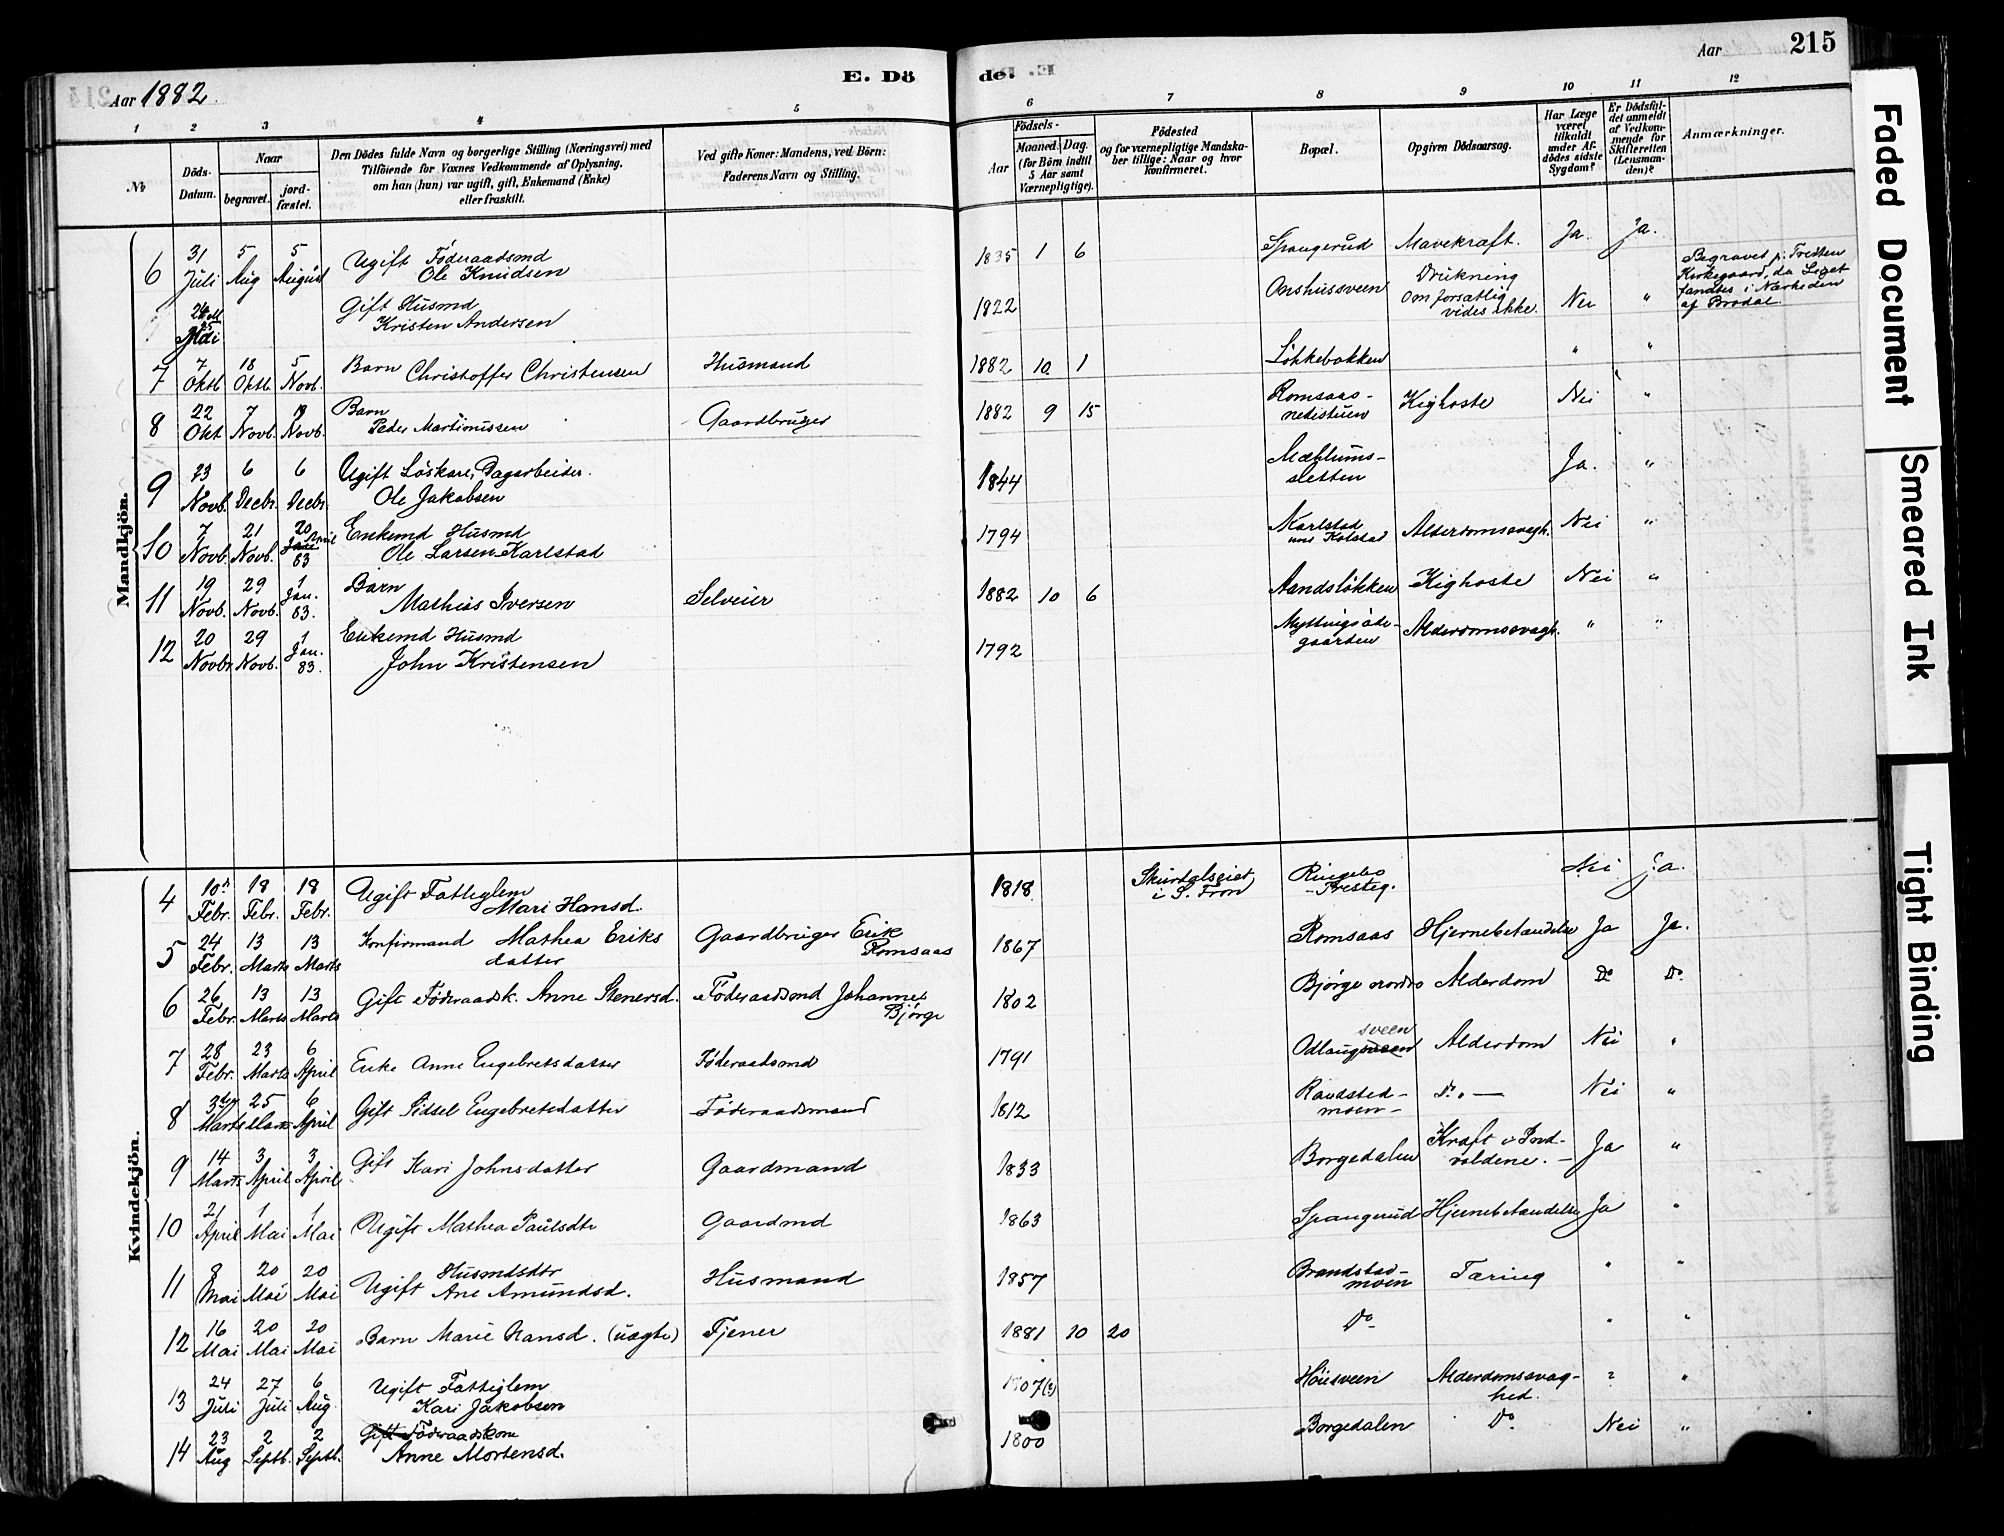 Aar 1882.
E. Døde.
Aar
215
1 2 3 4 5 6 7 8 9 10 11 12
№
Døds-Datum.
Naar
begravet.
jord-fæstet.
Den Dödes fulde Navn og borgerlige Stilling (Næringsvei) med
Tilföiende for Voxnes Vedkommende af Oplysning,
om han (hun) var ugift, gift, Enkemand (Enke)
eller fraskilt.
Ved gifte Koner: Mandens, ved Börn:
Faderens Navn og Stilling.
Födsels-
Aar
Maaned. Dag.
(for Börn indtil
5 Aar samt
Værnepligtige).
Födested
og for værnepligtige Mandska-
ber tillige: Naar og hvor
konfirmeret.
Bopæl.
Opgiven Dödsaarsag.
Har Læge
været
tilkaldt
under Af-
dödes sidste
Sygdom?
Er Dödsfal-
det anmeldt
af Vedkom-
mende for
Skifteretten
(Lensman-
den)?
Anmærkninger.
Mandkjön.
6 31 Juli 5 Aug 5 August Ugift Föderaadsmd Ole Knudsen 1835 1 6 Spangerud Mavekraft. Ja. Ja.
Mai Gift Husmd Kristen Andersen 1822 Onshussveen Drukning Om forsætlig vides ikke. Nei " Begravet p. Tretten Kirkegaard, da Liget fandtes i Nærheden af Brodal.
7 7 Oktb 18 Oktb. 5 Novb. Barn Christoffer Christensen Husmand 1882 10 1 Lökkebakken " "
8 22 Okt 7 Novb. 19 Novb. Barn Peder Martinussen Gaardbruger 1882 9 15 Romsaas-nedistuen Kighoste Nei "
9 23 Novb. 6 Decbr. 6 Decbr. Ugift Löskarl, Dagarbeider. Ole Jakobsen 1844 Mæhlums-sletten Ja. "
10 7 Novb. 21 Novb. 20 April 83 Enkemd Husmd Ole Larsen Karlstad 1794 Karlstad Kolstad Alderdomssvagh. Nei "
11 19 Novb. 29 Novb. 1 Jan. 83. Barn Mathias Iversen Selveier 1882 10 6 Aandslökken Kighoste Nei "
12 20 Novbr 29 Novb. 1 Jan. 83. Enkemd Husmd John Kristensen 1792 Myttingsöde-gaarden Alderdomssvagh. " "
Kvindekjön.
4 10 Febr. 18 Febr. 18 Febr. Ugift Fattiglem Mari Hansd. 1818 i S. Fron Ringebo Presteg. Nei Ja.
5 24 Febr. 13 Marts 13 Marts Konfirmand Mathea Eriksdatter Gaardbruger Erik Romsaas 1867 Romsaas Hjernebetændelse Ja Ja.
6 26 Febr. 13 Marts 13 Marts Gift Föderaadsk. Anne Stenersd. Föderaadsmd Johannes Bjørge 1802 Bjørge nordre Alderdom Do Do
7 28 Febr. 23 Marts 6 April Enke Anne Engebretsdatter Föderaadsmd 1791 Odlaugsveen sveen Alderdom Nei "
8 3die Marts 25 Marts 6 April Gift Sidsel Engebretsdatter Föderaadsmand 1812 Randsted-moen Do Nei "
9 14 Marts 3 April 3 April Gift Kari Johnsdatter Gaardmand 1833 Borgedalen Kræft i Ind-voldene. Ja "
10 21 April 1 Mai 1 Mai Ugift Mathea Paulsdtr Gaardmd 1863 Spangrud Hjernebetændelse Ja "
11 8 Mai 20 Mai 20 Mai Husmdsdtr Ugift Ane Amundsd. Husmand 1857 Brandstad-moen Tæring " "
12 16 Mai 20 Mai 20 Mai Barn Marie Hansd. (uægte) Tjener 1881 10 20 Do " "
13 24 Juli 27 Juli 6 Aug Ugift Fattiglem Kari Jakobsen 1807(?) Höiesveen Alderdomssvag-hed. " "
14 23 Aug 2 Septb. 2 Septb. Gift Föderaadskone Anne Mortensd. 1800 Borgedalen Do Nei "
Faded Document
Smeared Ink
Tight Binding